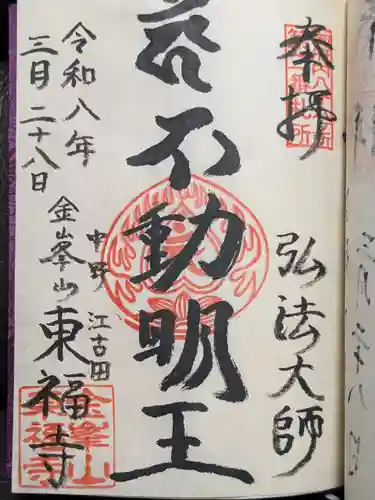 奉拝
弘法大師
不動明王
中野
江古田
令和八年
三月二十八日
金峯山
東福寺
金峯山
東福寺